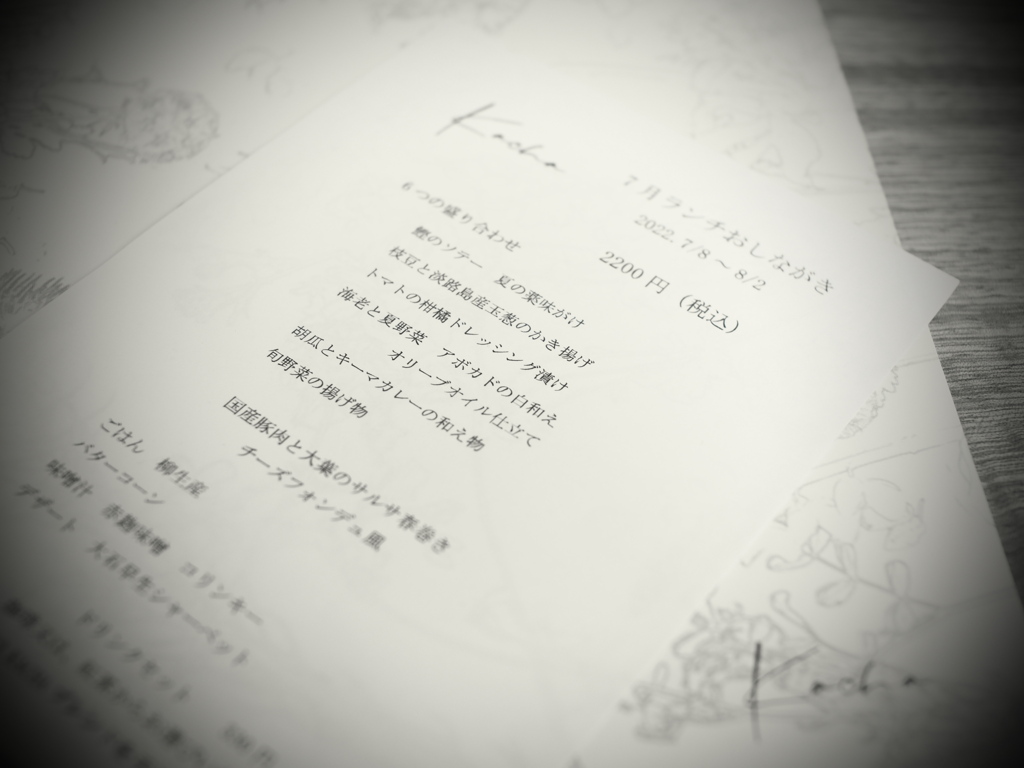 Kacha
7月ランチおしながき
2022. 7/8 ~ 8/2
2200円（税込）
6つの盛り合わせ
鰹のソテー 夏の薬味がけ
枝豆と淡路島産玉葱のかき揚げ
トマトの柑橘ドレッシング漬け
海老と夏野菜 アボカドの白和え
オリーブオイル仕立て
胡瓜とキーマカレーの和え物
旬野菜の揚げ物
国産豚肉と大葉のサルサ春巻き
チーズフォンデュ風
ごはん 柳生産
バターコーン
味噌汁 赤麹味噌 コリンキー
デザート 大石早生シャーベット
ドリンクセット
Kacha